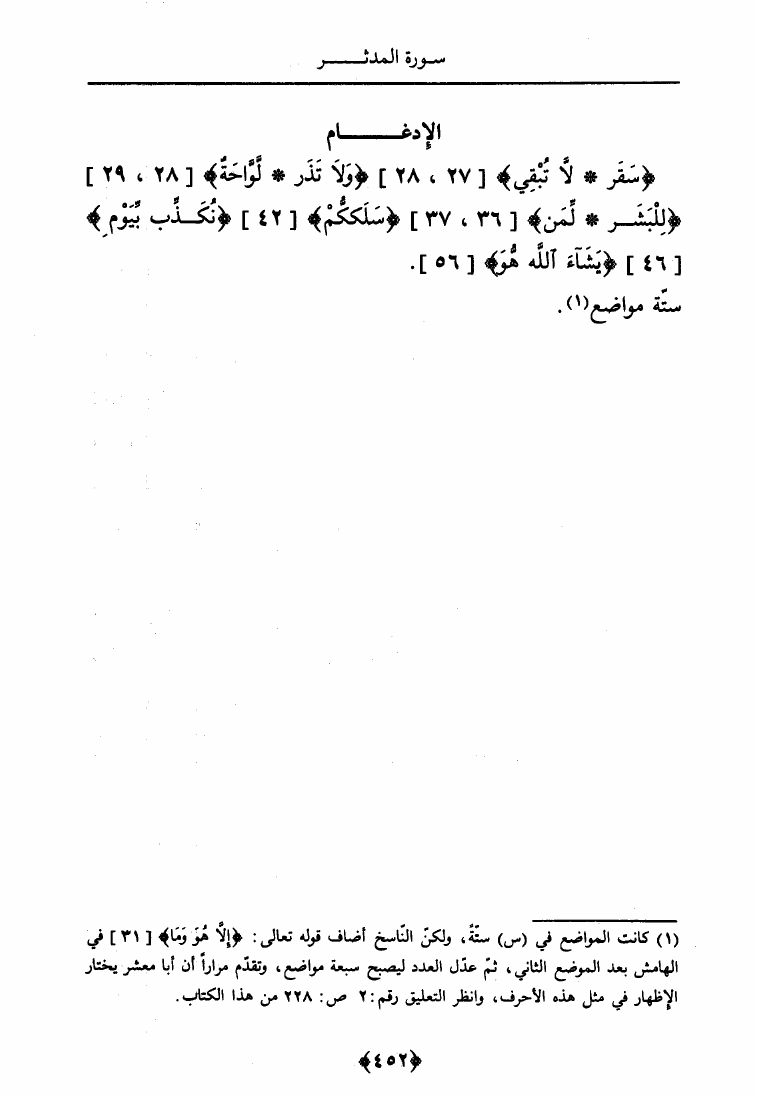 سورة المدثر
الإدغام
﴿سَقَر * لَّا تُبْقِي﴾ [ ٢٧ ، ٢٨ ] ﴿وَلاَ تَذَر * لَّوَّاحَةٌ﴾ [ ٢٨ ، ٢٩ ]
﴿لِلْبَشَر * لِّمَن﴾ [ ٣٦ ، ٣٧ ] ﴿سَلَككُّمْ﴾ [ ٤٢ ] ﴿نُكَذِّب بِّيَوْمِ﴾
[ ٤٦ ] ﴿يَشَآءَ ٱللَّه هُّوَ﴾ [ ٥٦ ].
ستّة مواضع(١).
(١) كانت المواضع في (س) ستّةً، ولكنّ النّاسخ أضاف قوله تعالى: ﴿إِلَّا هُوَ وَمَا﴾ [ ٣١ ] في
الهامش بعد الموضع الثاني، ثمّ عدّل العدد ليصبح سبعة مواضع، وتقدّم مراراً أن أبا معشر يختار
الإظهار في مثل هذه الأحرف، وانظر التعليق رقم: ٢ ص: ٢٢٨ من هذا الكتاب.
﴿٤٥٢﴾